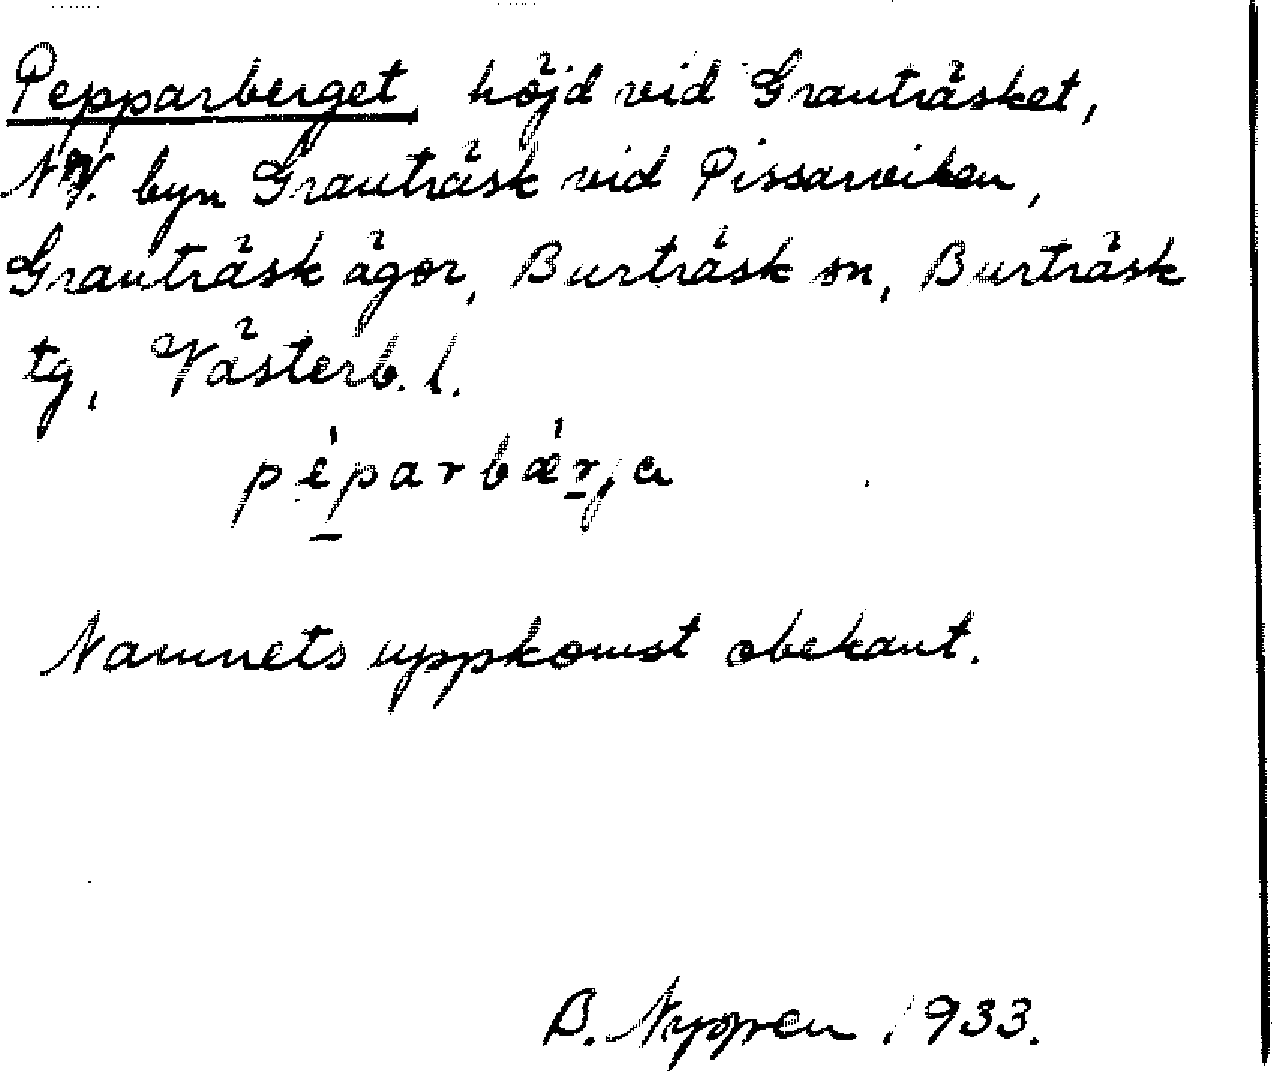 Pepparberget, höjd vid Granträsket,
NV. byn Granträsk vid Pissarviken,
Granträsk ägor, Burträsk sn, Burträsk
tg, Västerb. l.
pèparbær̠ja
Namnets uppkomst obekant.
B. 1933.